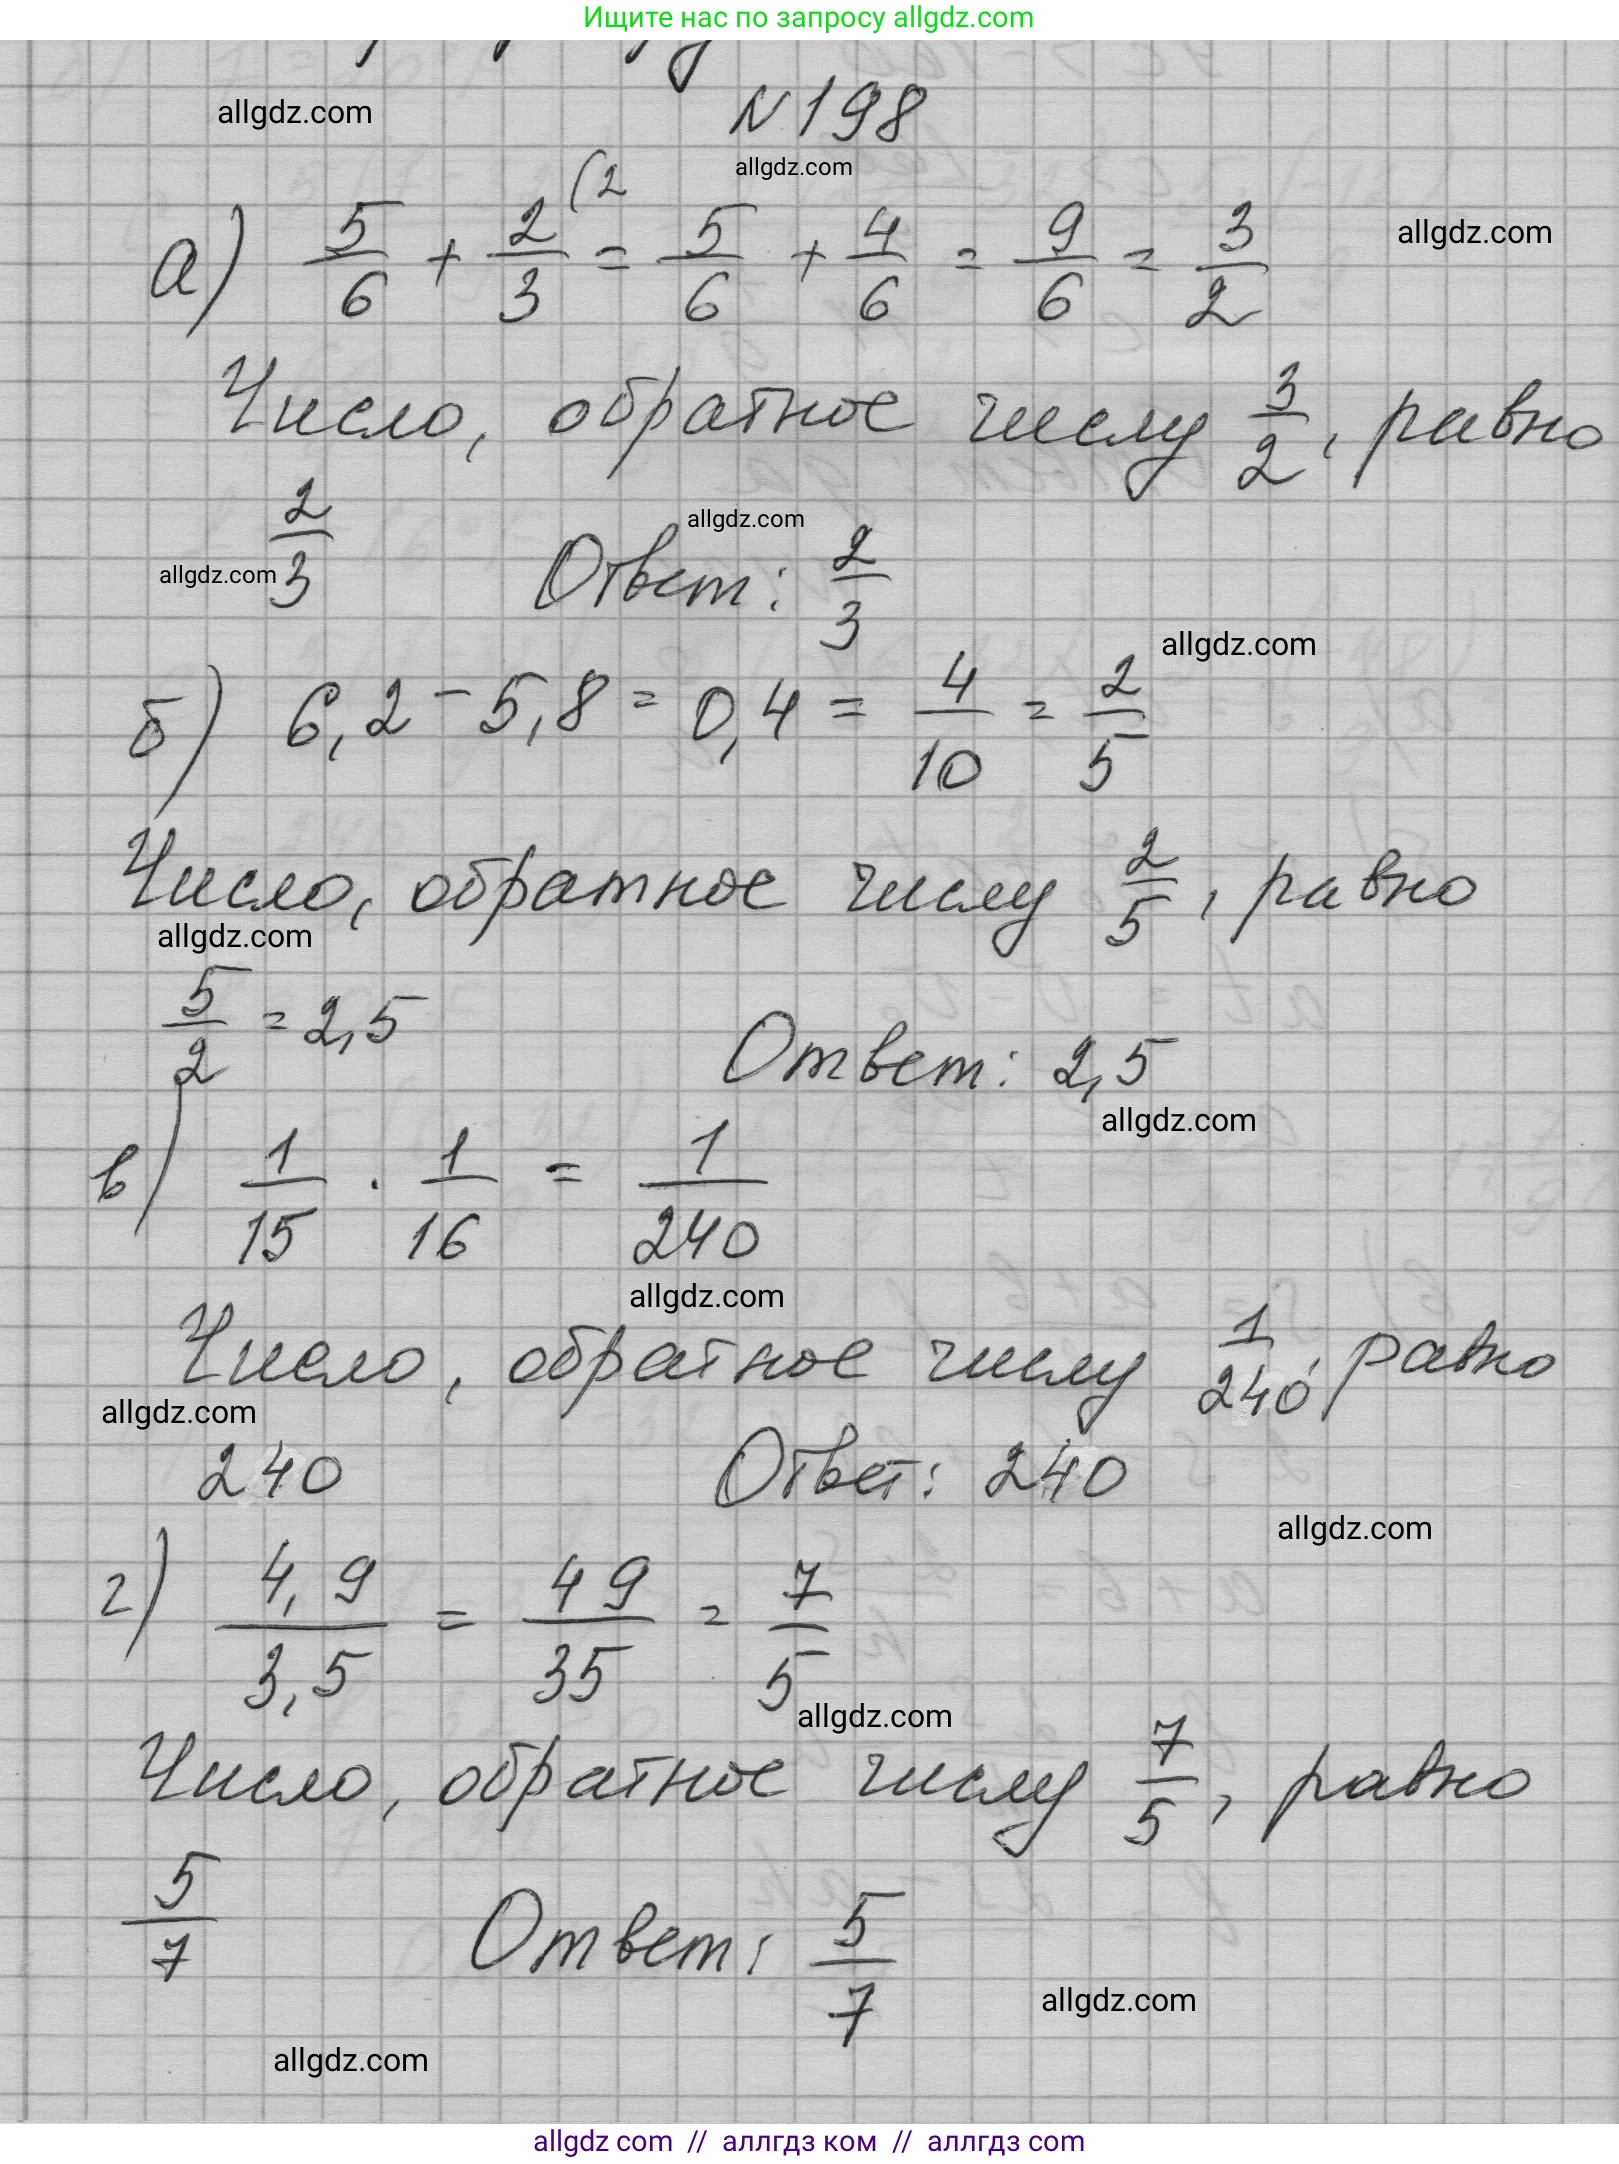 Ищите нас по запросу allgdz.com
allgdz.com
№198
allgdz.com
а) 5/6 + 2/3 (2 = 5/6 + 4/6 = 9/6 = 3/2
allgdz.com
Число, обратное числу 3/2, равно
2/3 Ответ: 2/3
allgdz.com
allgdz.com
allgdz.com
б) 6,2 - 5,8 = 0,4 = 4/10 = 2/5
Число, обратное числу 2/5, равно
allgdz.com
5/2 = 2,5 Ответ: 2,5
allgdz.com
в) 1/15 · 1/16 = 1/240
allgdz.com
Число, обратное числу 1/240, равно
allgdz.com
240 Ответ: 240
allgdz.com
г) 4,9/3,5 = 49/35 = 7/5
allgdz.com
Число, обратное числу 7/5, равно
5/7 Ответ: 5/7
allgdz.com
allgdz.com
allgdz com // аллгдз ком // аллгдз.com